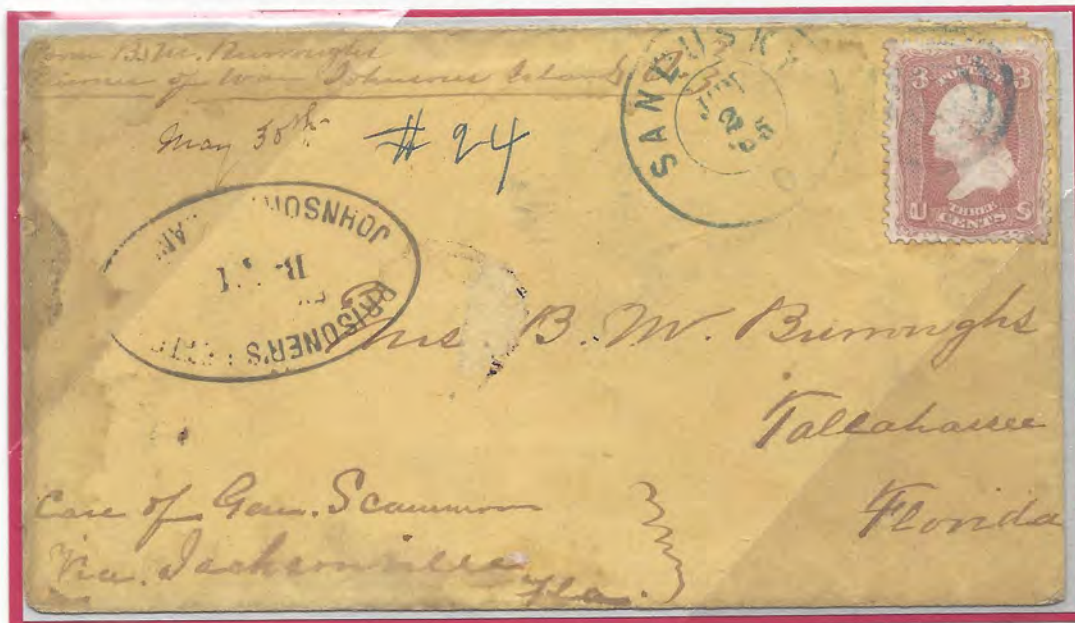 From B. W. Burroughs
Prisoner of War Johnsons Island
May 30th
# 24
SANDUSKY
O
3 U.S. POSTAGE 3
U THREE CENTS S
JOHNSON
PRISONER'S
Mrs B. W. Burroughs
Tallahassee
Florida
Care of Gen. Scammon
Via. Jacksonville
Fla.